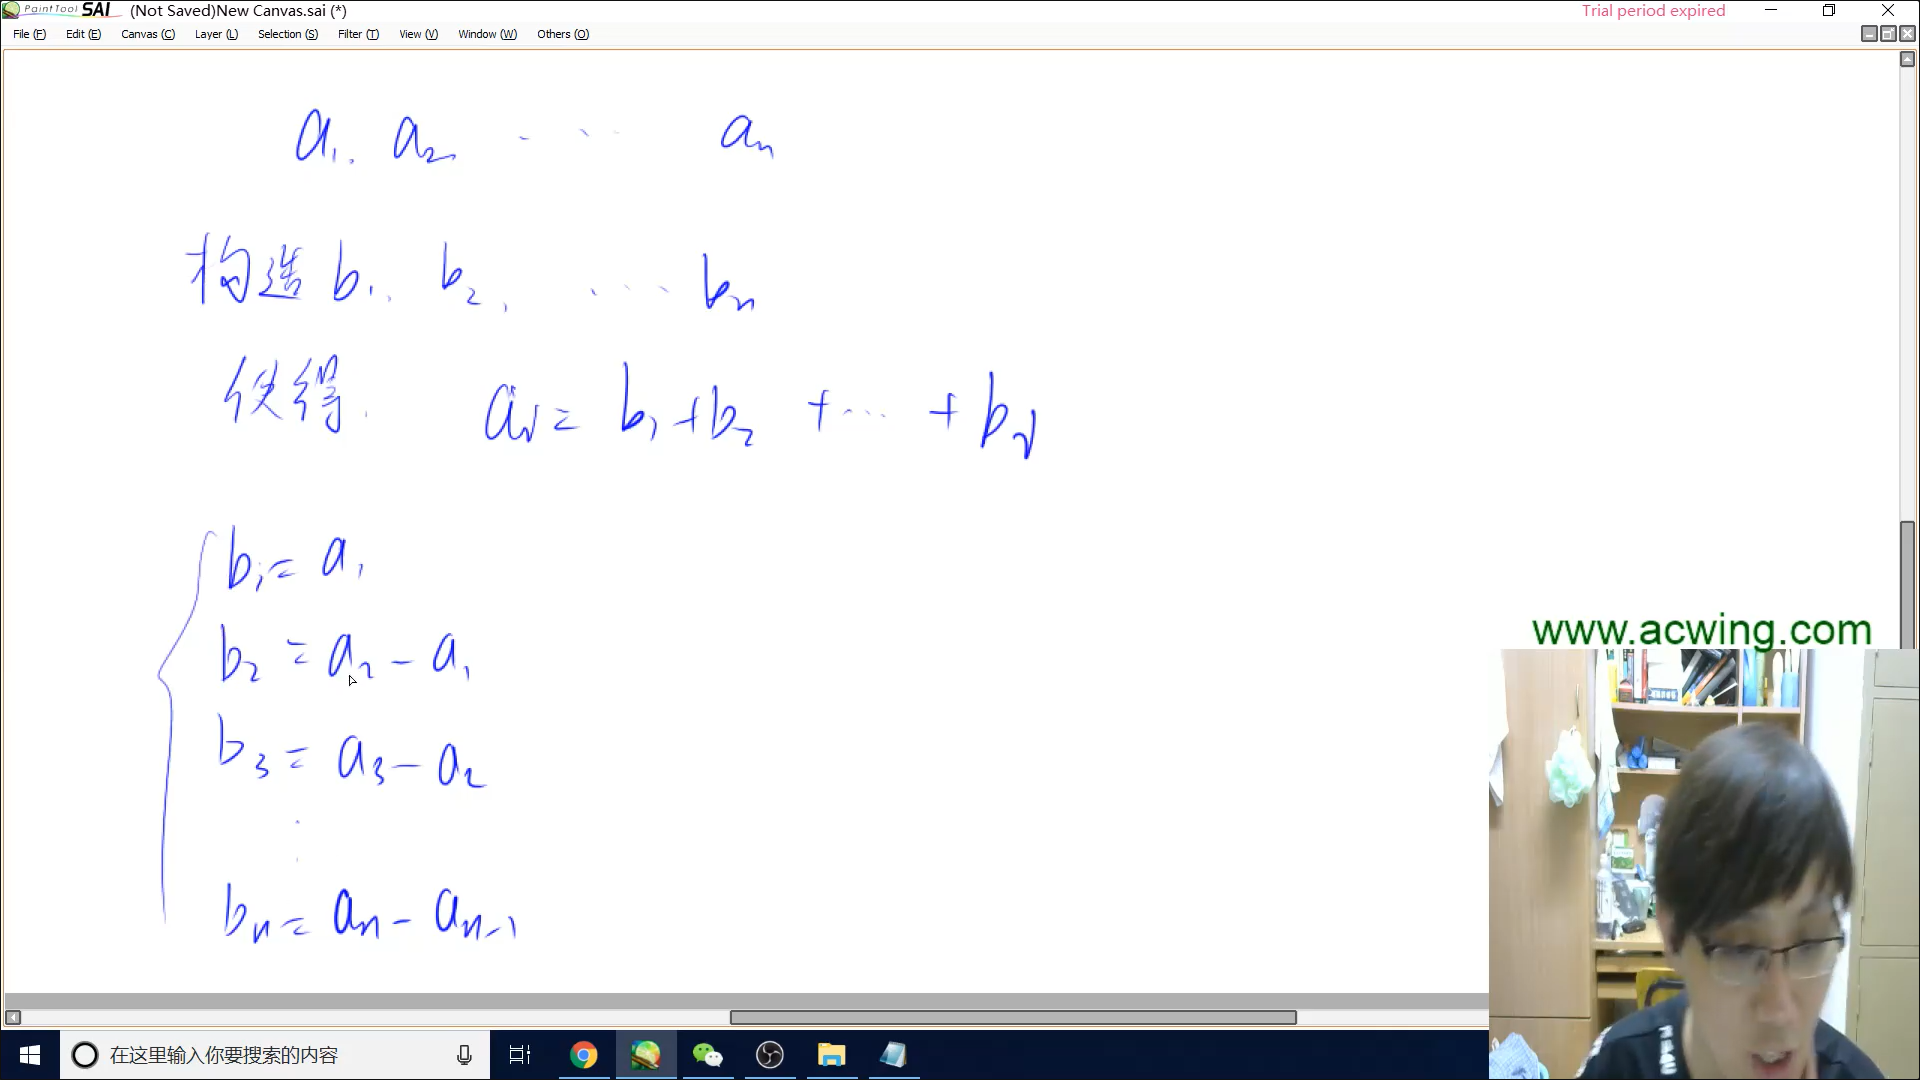 PaintTool SAI (Not Saved)New Canvas.sai (*) Trial period expired
File (F) Edit (E) Canvas (C) Layer (L) Selection (S) Filter (T) View (V) Window (W) Others (O)
a₁. a₂ ..... aₙ
构造 b₁, b₂, ..... bₙ
使得. aᵢ = b₁ + b₂ + ... + bᵢ
b₁ = a₁
b₂ = a₂ - a₁
b₃ = a₃ - a₂
⋮
bₙ = aₙ - aₙ₋₁
www.acwing.com
在这里输入你要搜索的内容